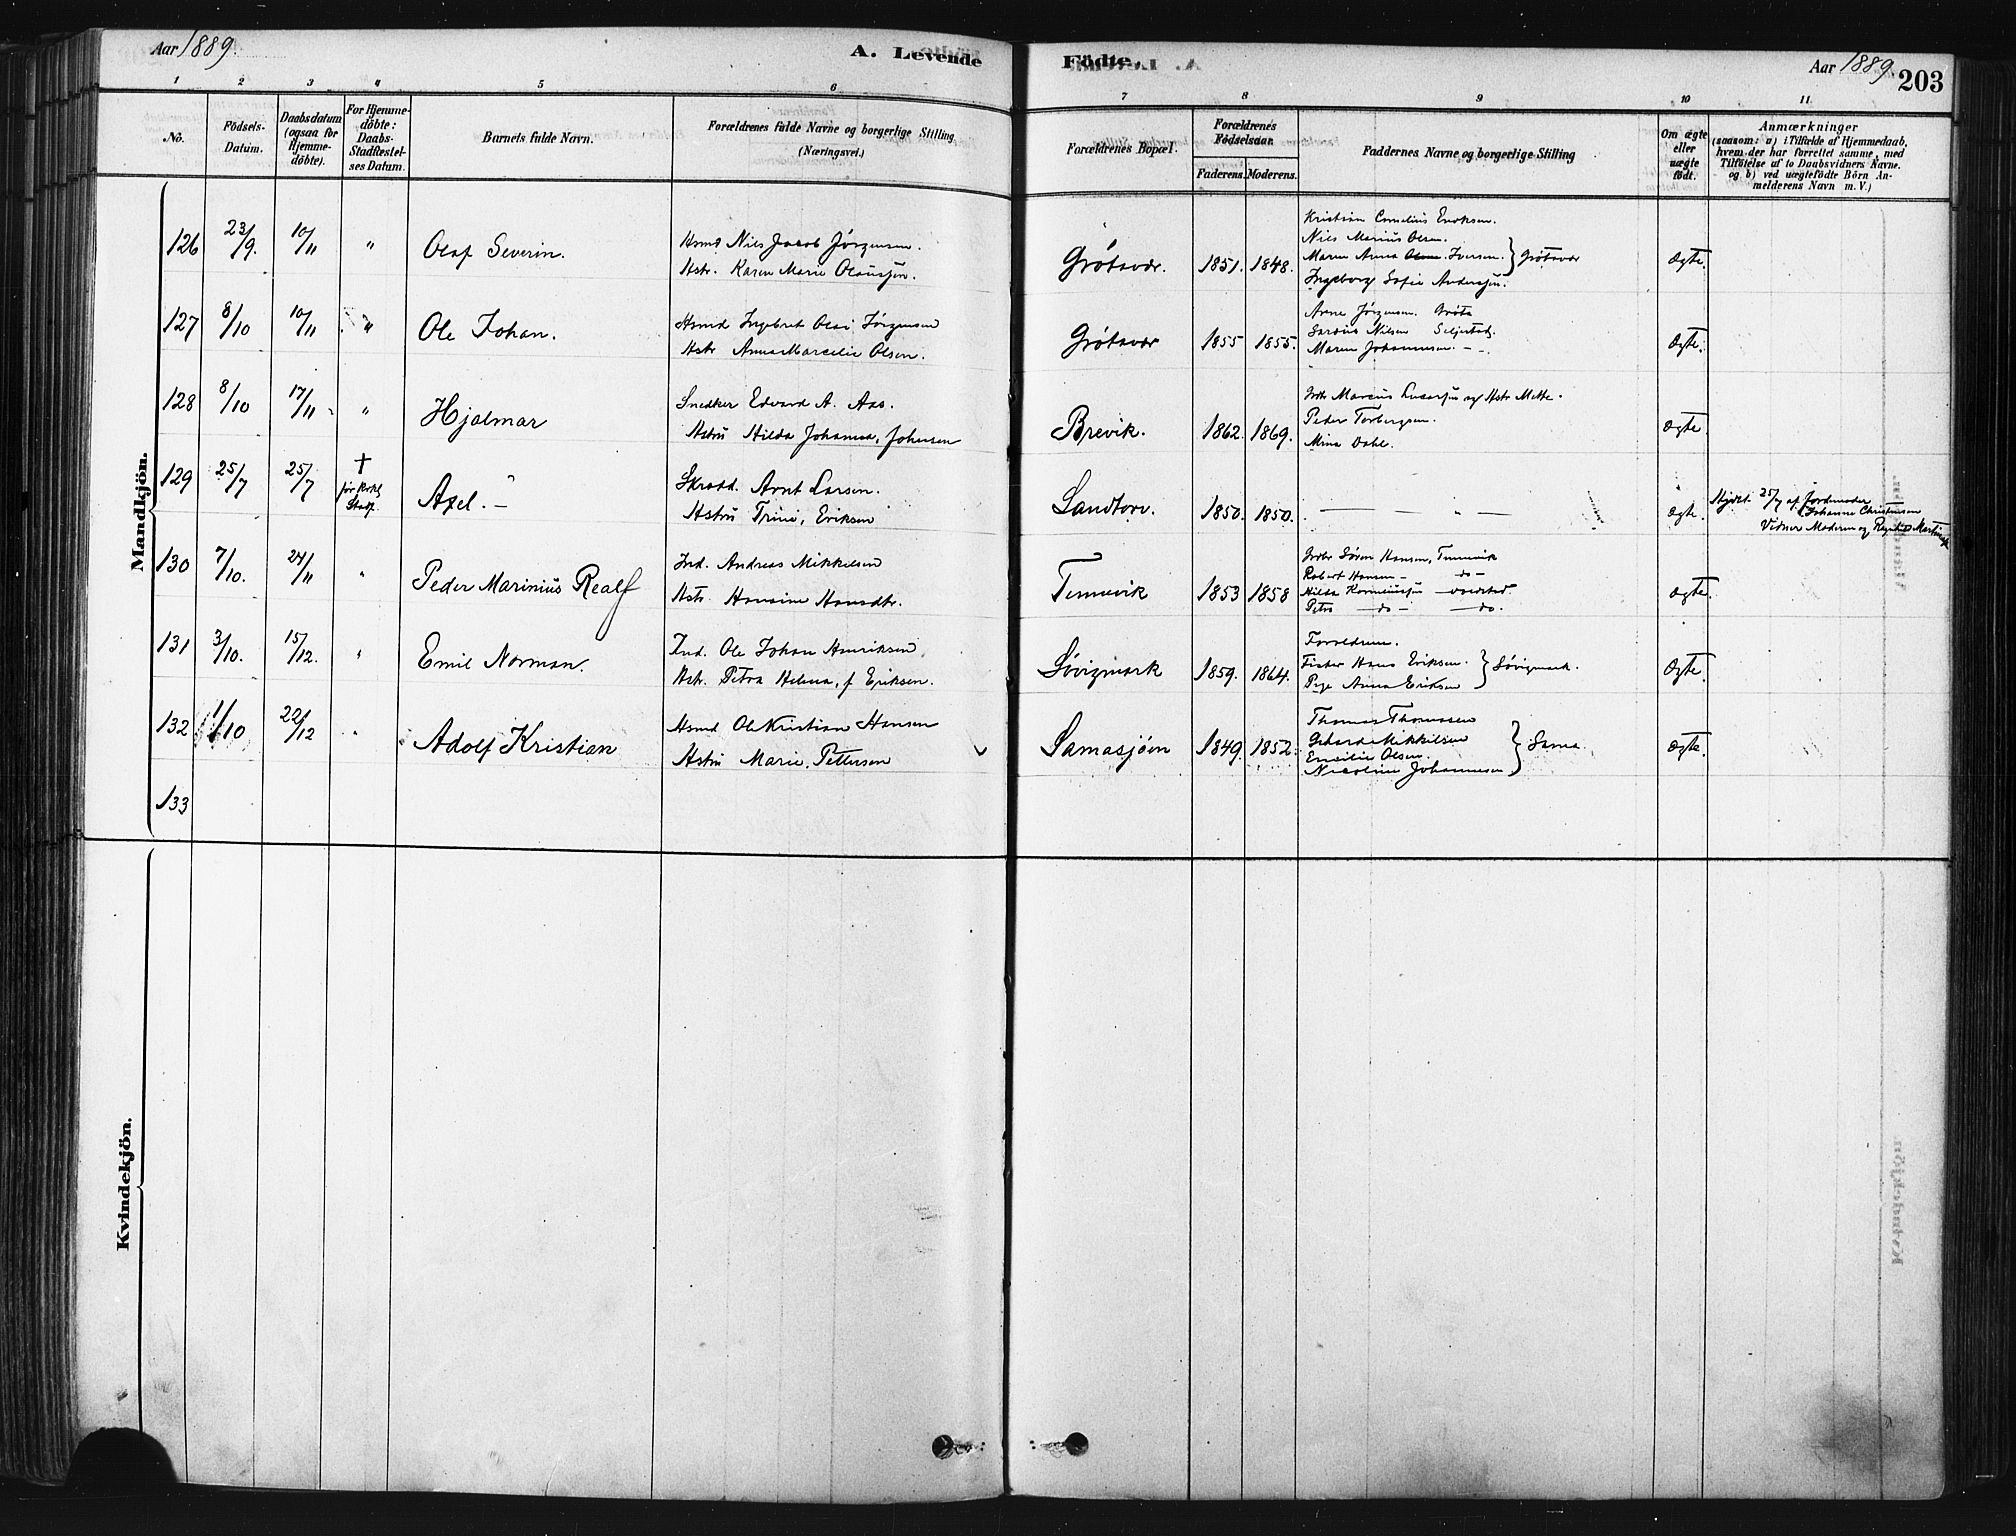 Aar 1889. A. Levende Födte. Aar 1889. 203
1 2 3 4 5 6 7 8 9 10 11
No. Födsels-Datum. Daabsdatum (ogsaa for Hjemme-döbte). For Hjemme-döbte: Daabs-Stadfestel-ses Datum. Barnets fulde Navn. Forældrenes fulde Navne og borgerlige Stilling. (Næringsvei.) Forældrenes Bopæl. Forældrenes Födselsaar. Faderens. Moderens. Faddernes Navne og borgerlige Stilling Om ægte eller uægte födt. Anmærkninger (saasom: a) i Tilfælde af Hjemmedaab, hvem der har forrettet samme, med Tilföielse af to Daabsvidners Navne. og b) ved uægtefödte Börn An-melderens Navn m. V.)
Mandkjön.
126 23/9. 10/11 " Olaf Severin. Hsmd Nils Jacob Jörgensen.
Hstr. Karen Marie Olausen. Grötavær. 1851. 1848. Kristian Cornelius Enoksen.
Nils Marius Olsen.
Maren Anna Iversen. } Grötavær
Ingeborg Sofie Andersen. Ægte.
127 8/10 10/11 " Ole Johan. Hsmd Ingebret Olai Jörgensen
Hstr Anna Marcelie Olsen. Grötavær 1855 1855. Arne Jörgensen. Gröta
Nilsen Seljestad.
Maren Johannesen. - - Ægte.
128 8/10 17/11 " Hjalmar Snedker Edvard A. Aas.
Hstru Hilda Johanna, Johnsen Brevik. 1862. 1869. Marcus og Hstr Mette.
Peder Torbergsen.
Mina Dahl. Ægte.
129 25/7 25/7 † för Stadf. Axel. - Skrædd. Arnt Larsen.
Hstru Trine, Eriksen Sandtorv. 1850. 1850. — " — Ægte. Hjdbt. 25/7 af Jordmoder
Johanne Christensen
Vidner Moderen og
130 7/10. 24/11 " Peder Marinius Realf Ind. Andreas Mikkelsen
Hstr. Hansine Hansdtr. Tennevik 1853 1858 Sören Hansen, Tennevik
Robert Hansen - do -
Hilda
Petra - do - - do. Ægte.
131 3/10. 15/12. " Emil Norman. Ind. Ole Johan Henriksen
Hstr. Petra Helena, f Eriksen. Sövigmark 1859. 1864. Forældrene.
Fisker Hans Eriksen. } Sövigmark.
Pige Anna Eriksen Ægte.
132 1/10 22/12 " Adolf Kristian Hsmd Ole Kristian Hansen
Hstru Marie, Pettersen Samasjöen 1849. 1852. Thomas Thomassen
Gehard Mikkelsen
Emilie Olsen. } Sama
Nicoline Johannesen Ægte.
133
Kvindekjön.